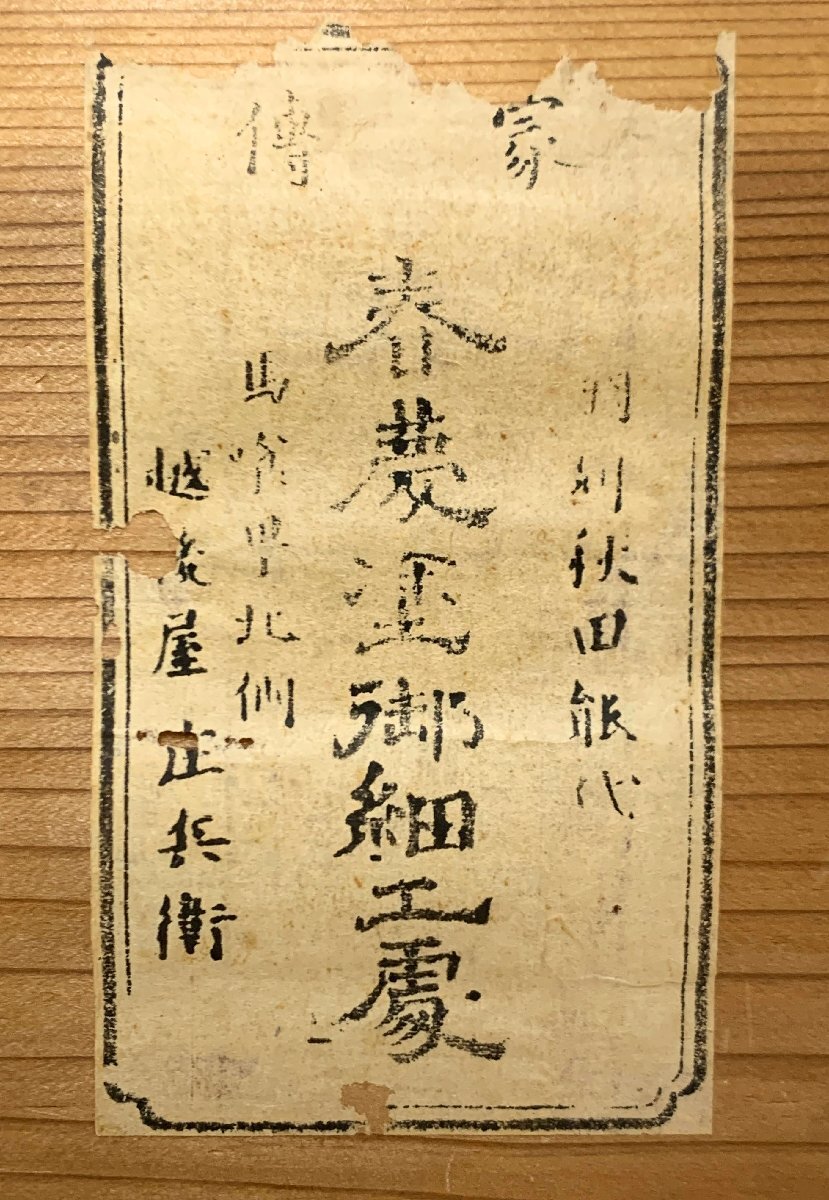 家傳
羽州秋田能代
春慶塗御細工處
馬喰甼北側
越後屋庄兵衛